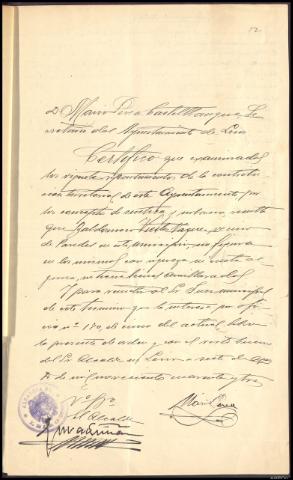 12
D. Mario Pérez Castellanque, Se
cretario del Ayuntamiento de Leiro
Certifico: que examinados
los vigentes repartimientos de la contribu
ción territorial de este Ayuntamiento, por
los conceptos de rústica y urbana, resulta
que Baldomero Vieitez, vecino
de Paredes en este municipio, no figura
en los mismos con riqueza ni cuota al
guna, ni tiene bienes amillarados
Y para remitir al Sr. Juez municipal
de este término que lo interesa por ofi
cio nº 170 de uno del actual, libro
la presente de orden y con el visto bueno
del Sr. Alcalde en Leiro a siete de
de mil novecientos cuarenta y tres
Vº Bº
El Alcalde